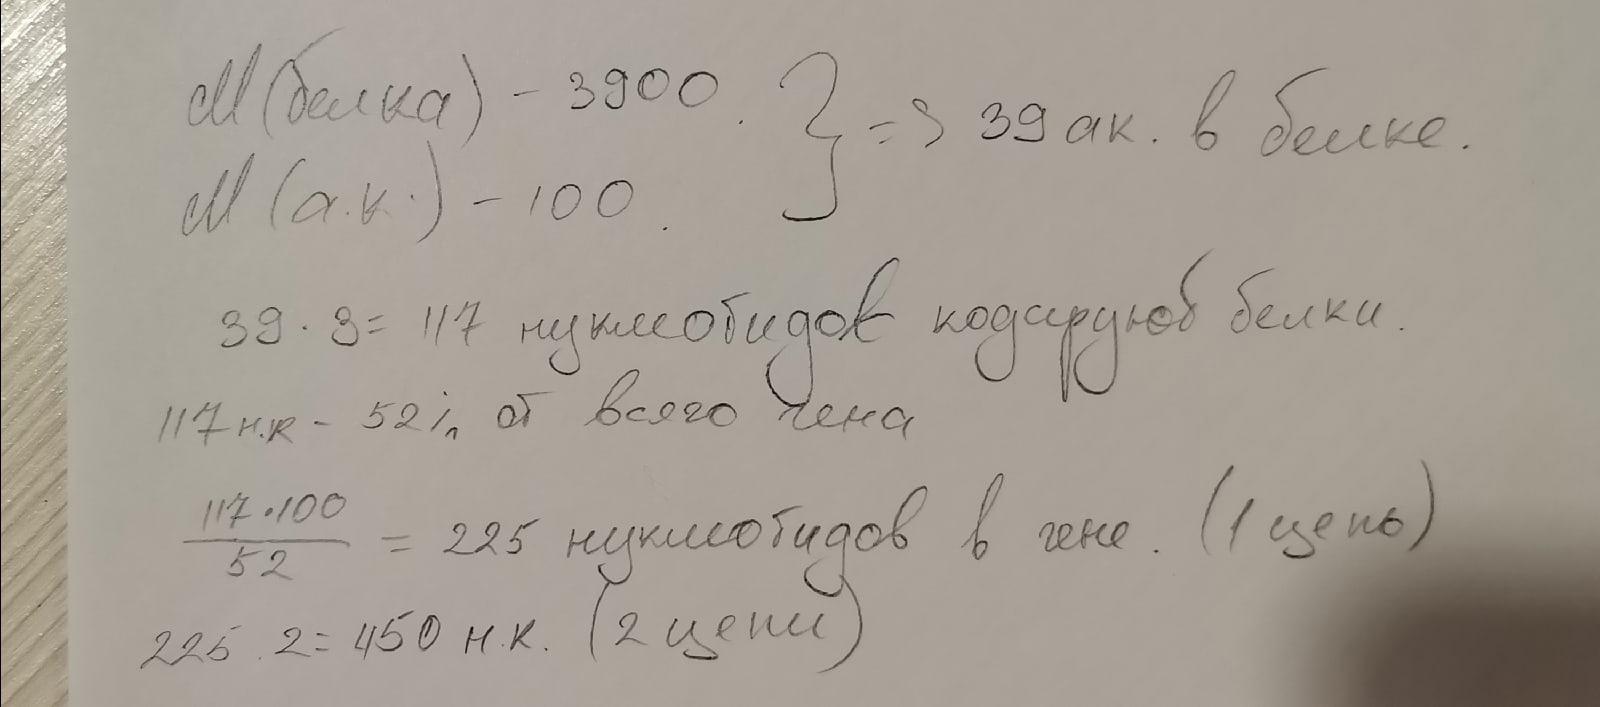 M (белка) - 3900.
M (а.к.) - 100.
} => 39 ак. в белке.
39 · 3 = 117 нуклеотидов кодируют белки.
117 н.к - 52% от всего гена
117·100 / 52 = 225 нуклеотидов в гене. (1 цепь)
225 · 2 = 450 н.к. (2 цепи)